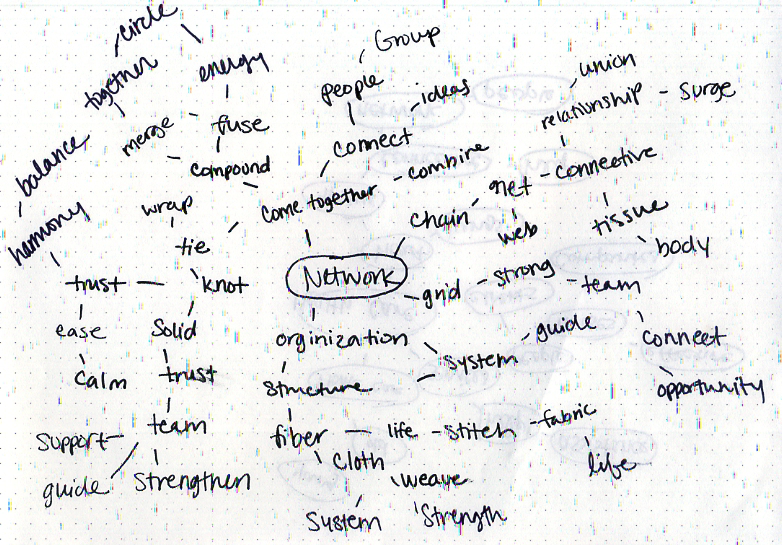 circle
together
energy
Group
people
ideas
union
relationship - surge
merge
fuse
connect
balance
compound
combine
connective
net
wrap
come together
chain
tissue
harmony
tie
web
body
trust
knot
Network
grid
strong
team
ease
Solid
orginization
guide
system
connect
calm
trust
structure
opportunity
support
team
fiber
life
stitch
fabric
cloth
life
guide
Strengthen
weave
System
Strength